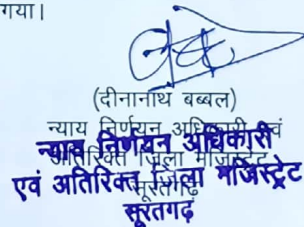 गया।
(दीनानाथ बब्बल)
न्याय निर्णयन अधिकारी एवं
अतिरिक्त जिला मजिस्ट्रेट
सूरतगढ़
न्याय निर्णयन अधिकारी
एवं अतिरिक्त जिला मजिस्ट्रेट
सूरतगढ़